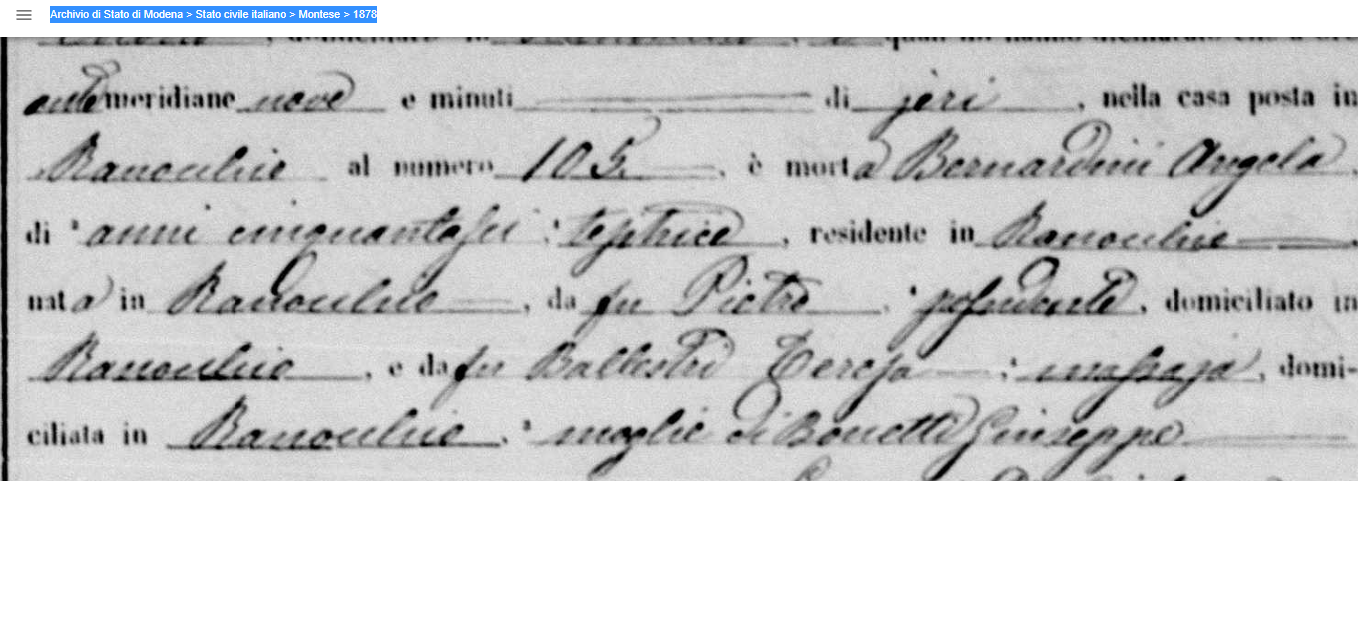 Archivio di Stato di Modena > Stato civile italiano > Montese > 1878
antemeridiane nove e minuti di jeri, nella casa posta in
Ranocchio al numero 105, è morta Bernardini Angela,
di anni cinquantasei, tessitrice, residente in Ranocchio,
nata in Ranocchio, da fu Pietro, possidente, domiciliato in
Ranocchio, e da fu Ballestri Teresa, massaja, domi-
ciliata in Ranocchio, moglie di Bonetti Giuseppe